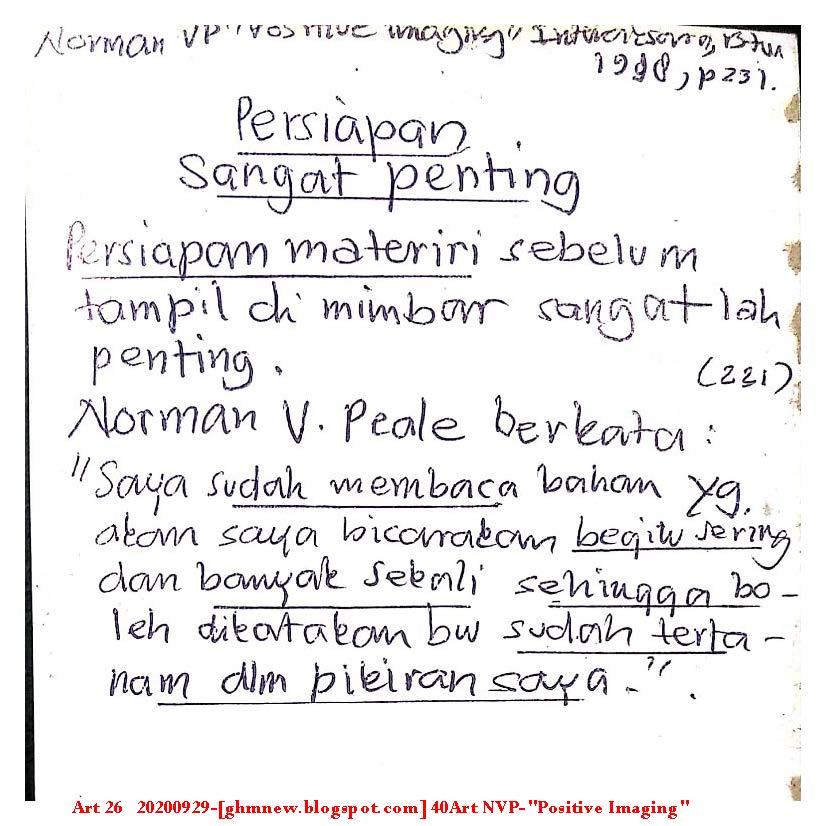 Norman VP "Positive Imaging"
1988, p231.
Persiapan
Sangat penting
Persiapan materiri sebelum
tampil di mimbar sangatlah
penting.
(221)
Norman V. Peale berkata:
"Saya sudah membaca bahan yg.
akan saya bicarakan begitu sering
dan banyak sekali sehingga bo-
leh dikatakan bw sudah terta-
nam dlm pikiran saya.".
Art 26 20200929-[ghmnew.blogspot.com] 40Art NVP-"Positive Imaging"